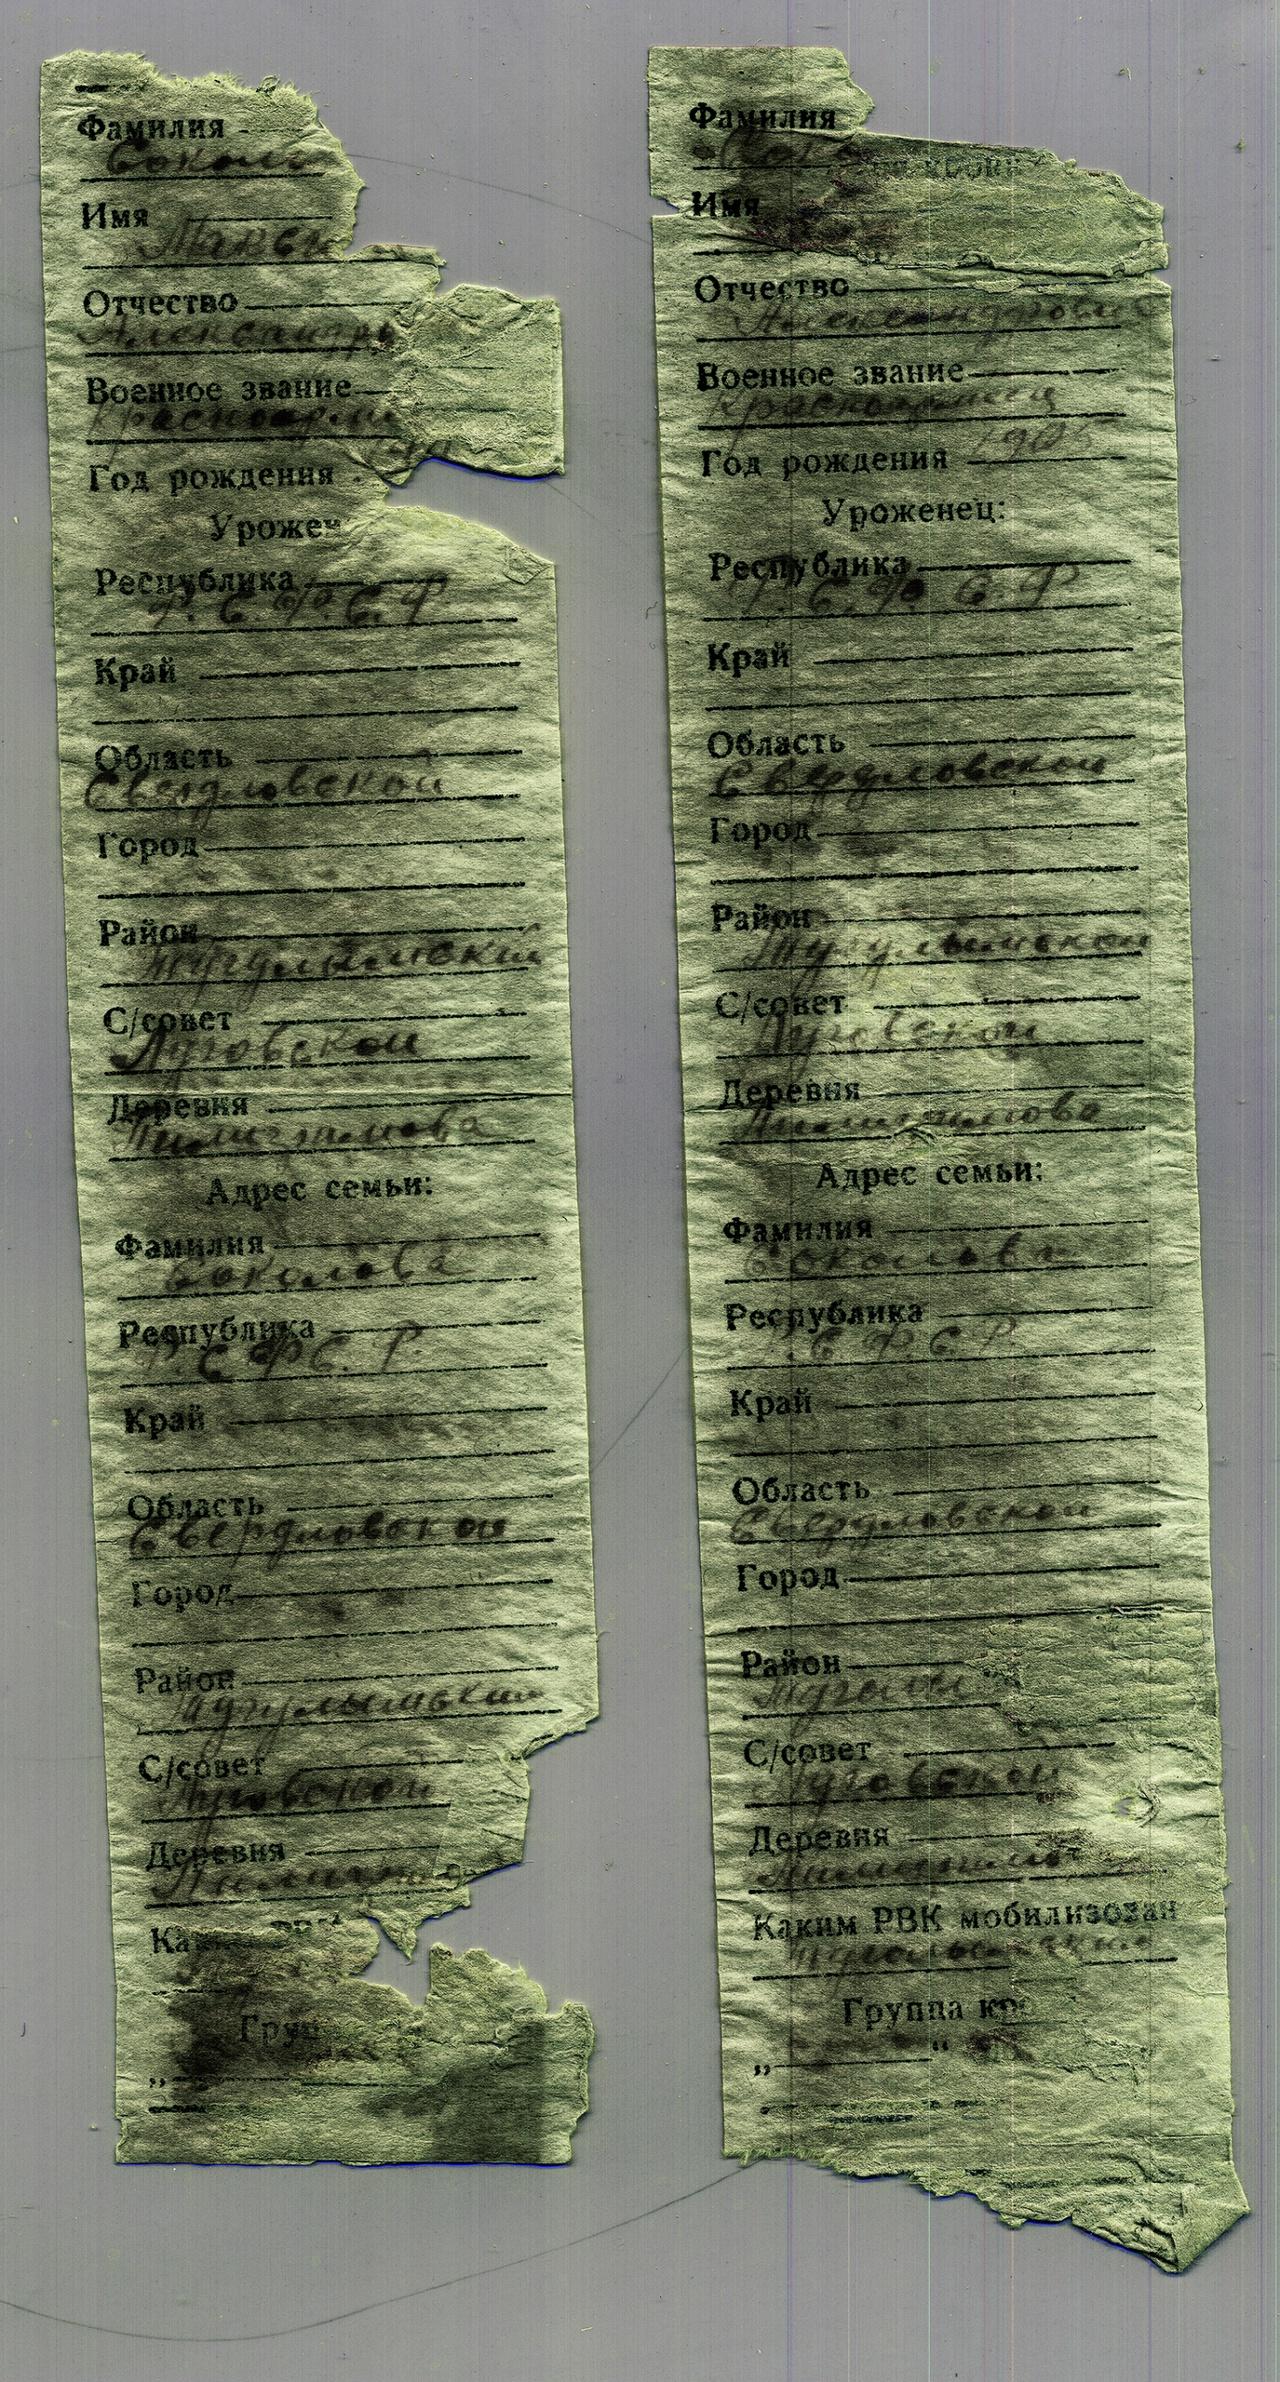 Фамилия
Сокол
Имя
Макси
Отчество
Александр
Военное звание
Красноарм
Год рождения
Урожен
Республика
Р. С. Ф. С. Р
Край
Область
Свердловской
Город
Район
Тугулымский
С/совет
Луговской
Деревня
Адрес семьи:
Фамилия
Соколова
Республика
Р С Ф С. Р.
Край
Область
Свердловской
Город
Район
Тугулымский
С/совет
Луговской
Деревня
Ка
Груп
„
Фамилия
Имя
Отчество
Александрович
Военное звание
Красноармеец
1905
Год рождения
Уроженец:
Республика
Р. С. Ф. С. Р
Край
Область
Свердловской
Город
Район
Тугулымской
С/совет
Луговской
Деревня
Адрес семьи:
Фамилия
Соколова
Республика
Р. С Ф С Р
Край
Область
Свердловской
Город
Район
С/совет
Луговской
Деревня
Каким РВК мобилизован
Группа кро
„ “